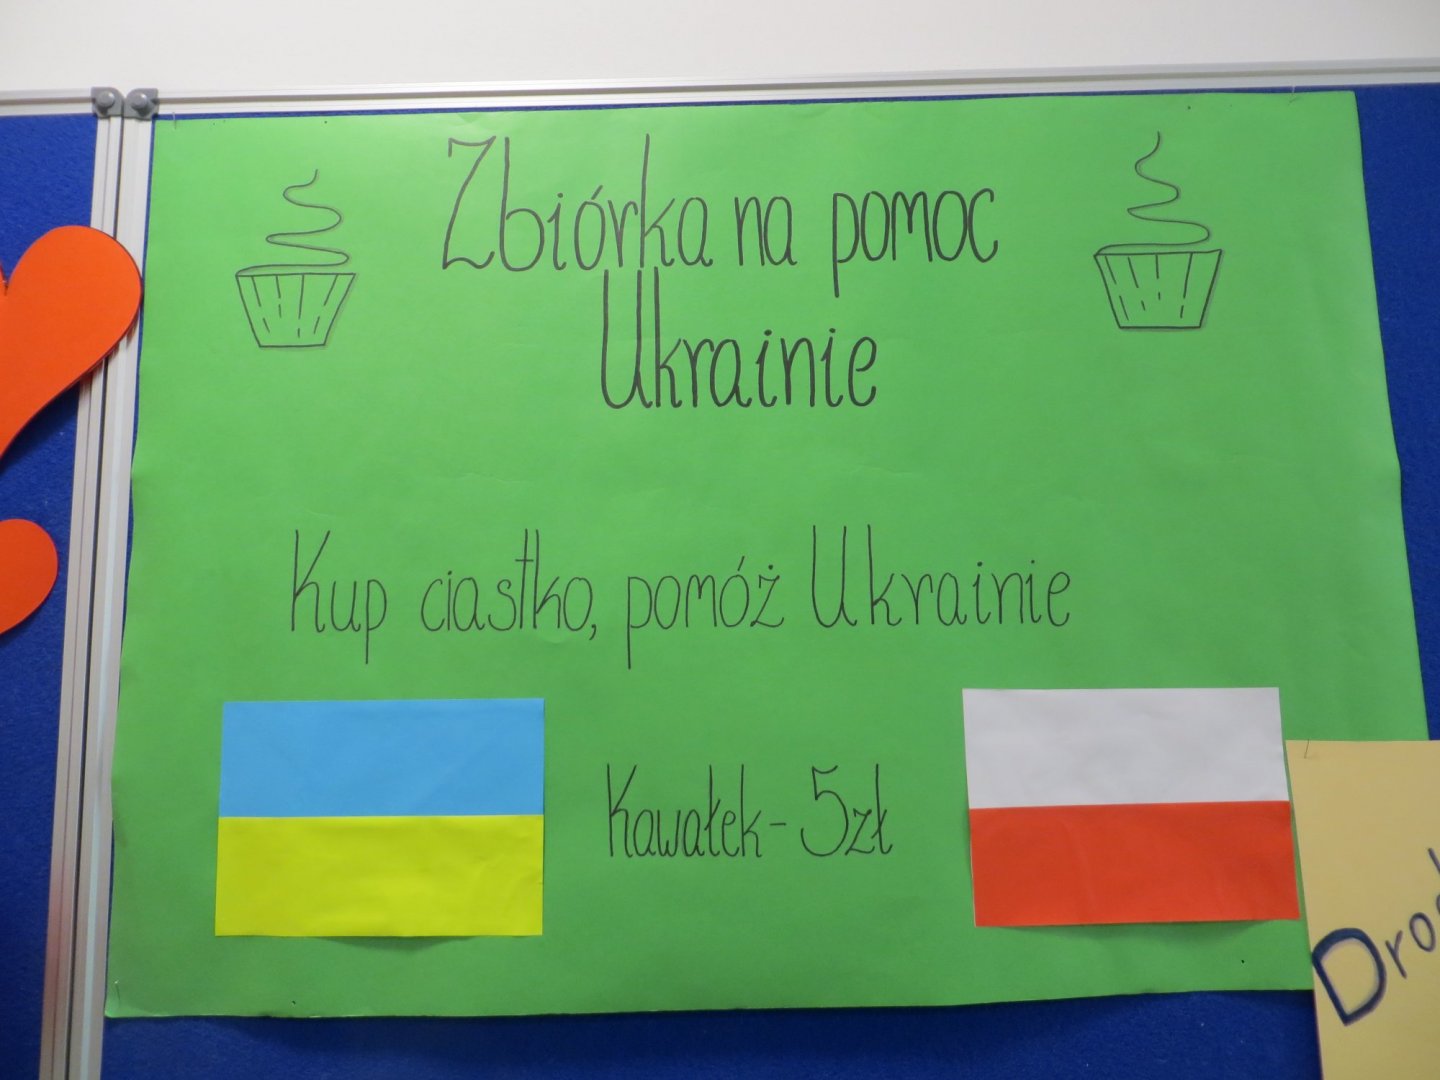 Zbiórka na pomoc
Ukrainie
Kup ciastko, pomóż Ukrainie
Kawałek - 5zł